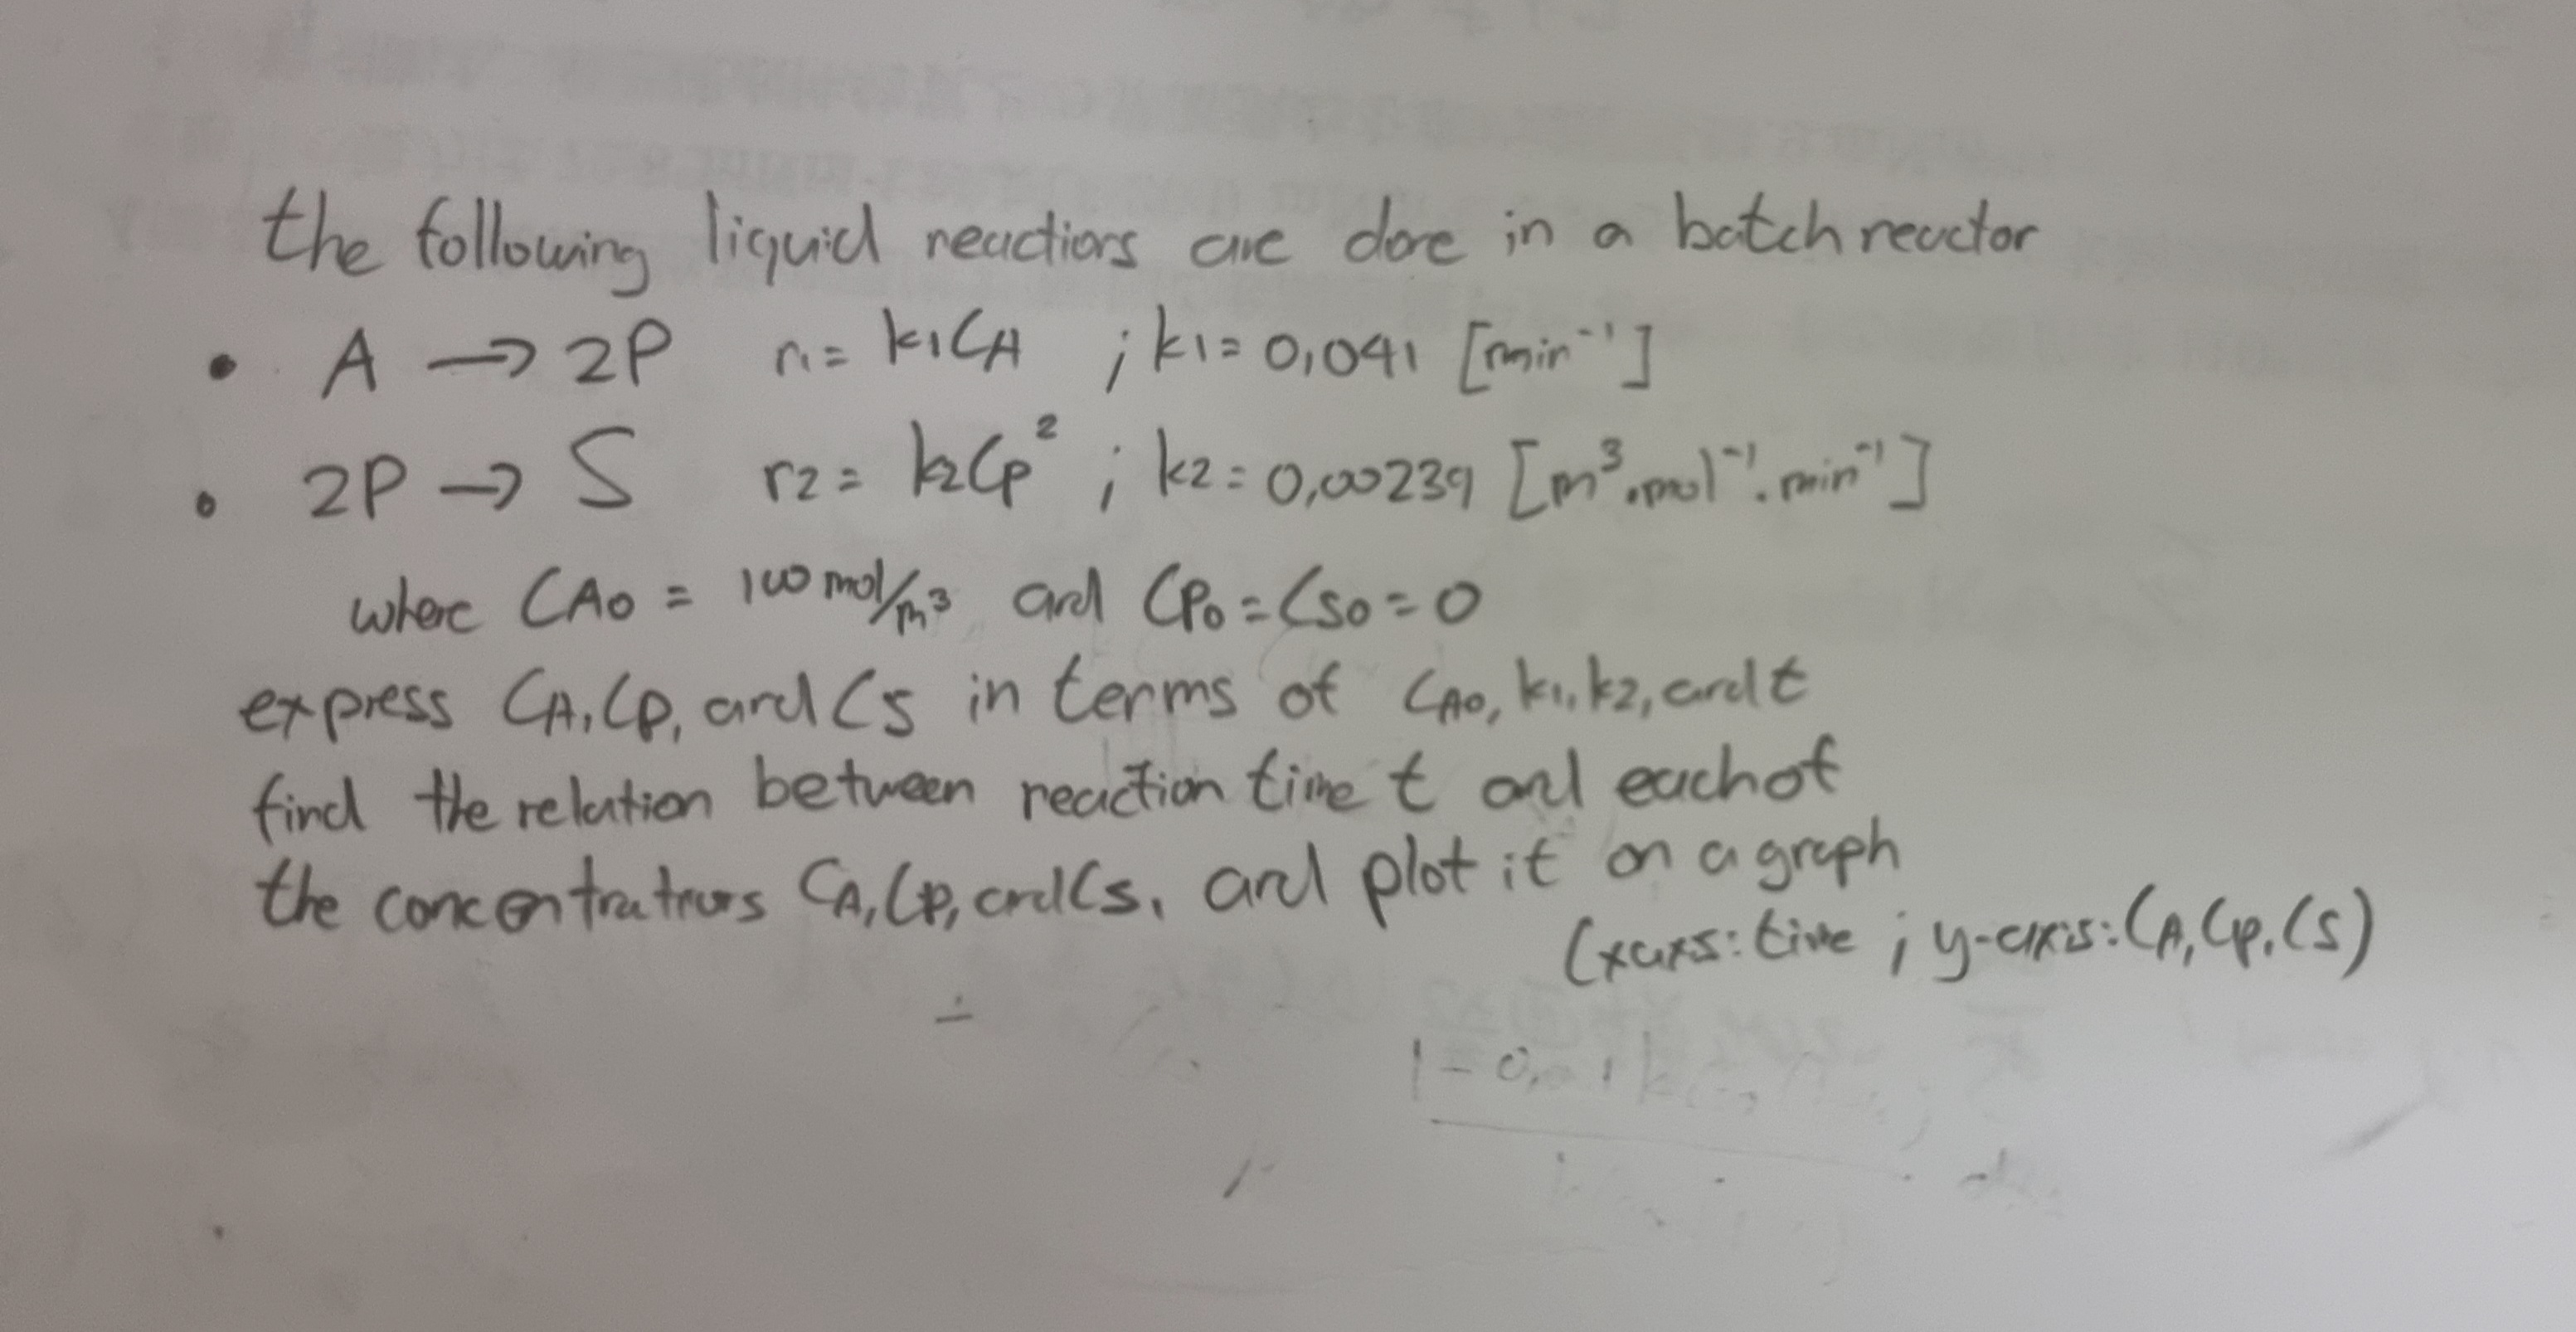 the following liquid reactions are done in a batch reactor
• A → 2P r1 = k1CA ; k1 = 0,041 [min⁻¹]
• 2P → S r2 = k2Cp² ; k2 = 0,00239 [m³.mol⁻¹.min⁻¹]
where CA0 = 100 mol/m³ and Cp0 = Cs0 = 0
express CA, Cp, and Cs in terms of CA0, k1, k2, and t
find the relation between reaction time t and each of
the concentrations CA, Cp, and Cs, and plot it on a graph
(xaxis: time ; y-axis: CA, Cp, Cs)